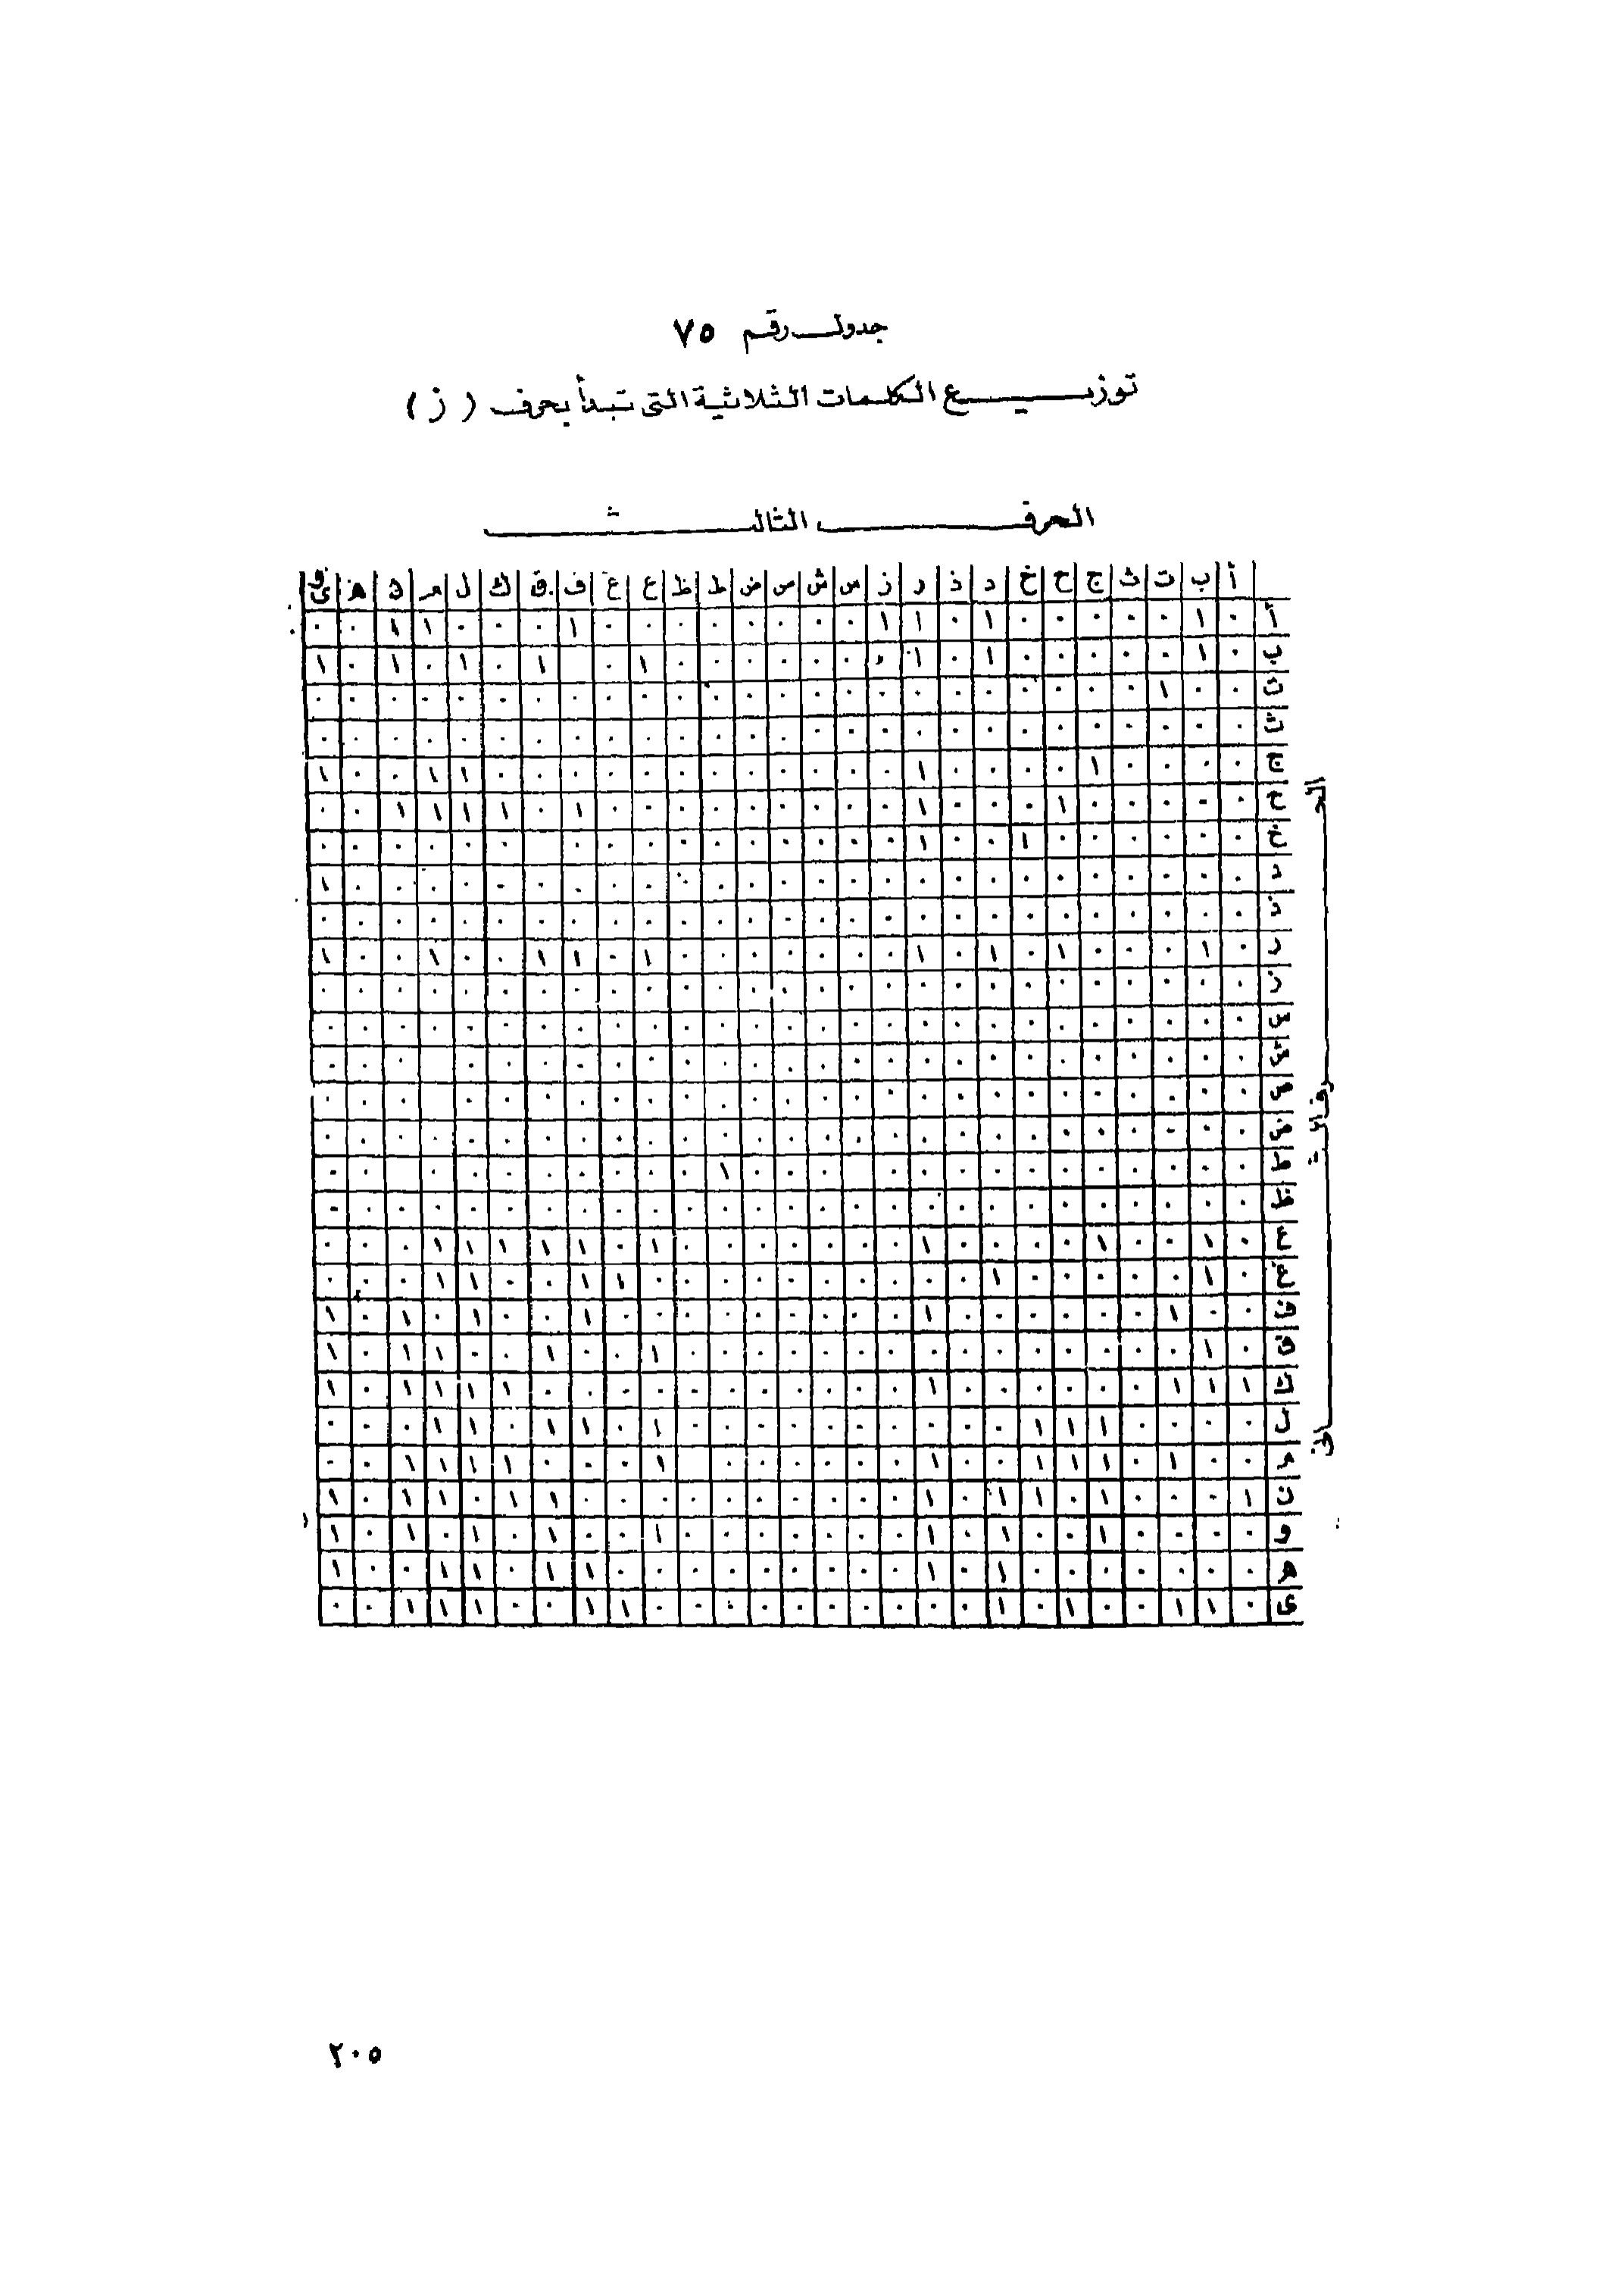 جدول رقم ٧٥
توزيع الكلمات الثلاثية التى تبدأ بحرف ( ز )
الحرف الثالث
أ ب ت ث ج ح خ د ذ ر ز س ش ص ض ط ظ ع غ ف ق ك ل م ن ه وى
الحرف الثانى
أ ٠ ١ ٠ ٠ ٠ ٠ ٠ ١ ٠ ١ ١ ٠ ٠ ٠ ٠ ٠ ٠ ٠ ٠ ١ ٠ ٠ ٠ ١ ١ ٠ ٠
ب ٠ ١ ٠ ٠ ٠ ٠ ٠ ١ ٠ ١ ٠ ٠ ٠ ٠ ٠ ٠ ٠ ١ ٠ ١ ٠ ١ ٠ ١ ٠ ١
ت ٠ ٠ ١ ٠ ٠ ٠ ٠ ٠ ٠ ٠ ٠ ٠ ٠ ٠ ٠ ٠ ٠ ٠ ٠ ٠ ٠ ٠ ٠ ٠ ٠ ٠ ٠
ث ٠ ٠ ٠ ٠ ٠ ٠ ٠ ٠ ٠ ٠ ٠ ٠ ٠ ٠ ٠ ٠ ٠ ٠ ٠ ٠ ٠ ٠ ٠ ٠ ٠ ٠ ٠
ج ٠ ٠ ٠ ٠ ١ ٠ ٠ ٠ ٠ ١ ٠ ٠ ٠ ٠ ٠ ٠ ٠ ٠ ٠ ٠ ٠ ٠ ١ ١ ٠ ٠ ١
ح ٠ ٠ ٠ ٠ ٠ ١ ٠ ٠ ٠ ١ ٠ ٠ ٠ ٠ ٠ ٠ ٠ ٠ ٠ ١ ٠ ١ ١ ١ ١ ٠ ٠
خ ٠ ٠ ٠ ٠ ٠ ٠ ١ ٠ ٠ ١ ٠ ٠ ٠ ٠ ٠ ٠ ٠ ٠ ٠ ٠ ٠ ٠ ٠ ٠ ٠ ٠
د ٠ ٠ ٠ ٠ ٠ ٠ ٠ ٠ ٠ ٠ ٠ ٠ ٠ ٠ ٠ ٠ ٠ ٠ ٠ ٠ ٠ ٠ ٠ ٠ ٠ ٠ ١
ذ ٠ ٠ ٠ ٠ ٠ ٠ ٠ ٠ ٠ ٠ ٠ ٠ ٠ ٠ ٠ ٠ ٠ ٠ ٠ ٠ ٠ ٠ ٠ ٠ ٠ ٠ ٠
ر ٠ ١ ٠ ٠ ٠ ١ ٠ ١ ٠ ١ ٠ ٠ ٠ ٠ ٠ ٠ ٠ ١ ٠ ١ ١ ٠ ٠ ١ ٠ ٠ ١
ز ٠ ٠ ٠ ٠ ٠ ٠ ٠ ٠ ٠ ٠ ٠ ٠ ٠ ٠ ٠ ٠ ٠ ٠ ٠ ٠ ٠ ٠ ٠ ٠ ٠ ٠ ٠
س ٠ ٠ ٠ ٠ ٠ ٠ ٠ ٠ ٠ ٠ ٠ ٠ ٠ ٠ ٠ ٠ ٠ ٠ ٠ ٠ ٠ ٠ ٠ ٠ ٠ ٠ ٠
ش ٠ ٠ ٠ ٠ ٠ ٠ ٠ ٠ ٠ ٠ ٠ ٠ ٠ ٠ ٠ ٠ ٠ ٠ ٠ ٠ ٠ ٠ ٠ ٠ ٠ ٠
ص ٠ ٠ ٠ ٠ ٠ ٠ ٠ ٠ ٠ ٠ ٠ ٠ ٠ ٠ ٠ ٠ ٠ ٠ ٠ ٠ ٠ ٠ ٠ ٠ ٠ ٠
ض ٠ ٠ ٠ ٠ ٠ ٠ ٠ ٠ ٠ ٠ ٠ ٠ ٠ ٠ ٠ ٠ ٠ ٠ ٠ ٠ ٠ ٠ ٠ ٠ ٠ ٠ ٠
ط ٠ ٠ ٠ ٠ ٠ ٠ ٠ ٠ ٠ ٠ ٠ ٠ ٠ ٠ ١ ٠ ٠ ٠ ٠ ٠ ٠ ٠ ٠ ٠
ظ ٠ ٠ ٠ ٠ ٠ ٠ ٠ ٠ ٠ ٠ ٠ ٠ ٠ ٠ ٠ ٠ ٠ ٠ ٠ ٠ ٠ ٠ ٠ ٠ ٠ ٠ ٠
ع ٠ ١ ٠ ٠ ١ ٠ ٠ ٠ ٠ ١ ٠ ٠ ٠ ٠ ٠ ٠ ٠ ١ ٠ ١ ١ ١ ١ ١ ٠ ٠ ٠
غ ٠ ١ ٠ ٠ ٠ ٠ ٠ ١ ٠ ٠ ٠ ٠ ٠ ٠ ٠ ٠ ٠ ٠ ١ ١ ٠ ٠ ١ ١ ٠ ٠ ٠
ف ٠ ٠ ١ ٠ ٠ ٠ ٠ ٠ ٠ ١ ٠ ٠ ٠ ٠ ٠ ٠ ٠ ٠ ٠ ١ ٠ ٠ ١ ٠ ١ ٠ ١
ق ٠ ١ ٠ ٠ ٠ ٠ ٠ ٠ ٠ ٠ ٠ ٠ ٠ ٠ ٠ ٠ ٠ ١ ٠ ٠ ١ ٠ ٠ ١ ١ ٠ ١
ك ١ ١ ١ ٠ ٠ ٠ ٠ ٠ ٠ ١ ٠ ٠ ٠ ٠ ٠ ٠ ٠ ٠ ٠ ٠ ٠ ١ ١ ١ ١ ٠ ١
ل ٠ ٠ ٠ ٠ ١ ١ ١ ٠ ٠ ٠ ٠ ٠ ٠ ٠ ٠ ٠ ٠ ١ ٠ ١ ١ ٠ ١ ١ ٠ ٠ ٠
م ٠ ٠ ١ ٠ ١ ١ ١ ٠ ٠ ١ ٠ ٠ ٠ ٠ ٠ ٠ ١ ٠ ٠ ٠ ١ ١ ١ ١ ٠ ٠
ن ١ ٠ ٠ ٠ ١ ٠ ١ ١ ٠ ١ ٠ ٠ ٠ ٠ ٠ ٠ ٠ ٠ ٠ ٠ ١ ١ ٠ ١ ١ ٠ ١
و ٠ ٠ ٠ ٠ ١ ٠ ٠ ١ ٠ ١ ٠ ٠ ٠ ٠ ٠ ٠ ٠ ١ ٠ ٠ ١ ٠ ١ ٠ ١ ٠ ١
ه ٠ ٠ ٠ ٠ ٠ ٠ ٠ ١ ٠ ١ ٠ ٠ ٠ ٠ ٠ ٠ ٠ ٠ ٠ ١ ١ ٠ ١ ١ ٠ ٠ ١
ى ٠ ١ ١ ٠ ٠ ١ ٠ ١ ٠ ٠ ٠ ٠ ٠ ٠ ٠ ٠ ٠ ٠ ١ ١ ٠ ٠ ١ ١ ١ ٠ ٠
٢٠٥